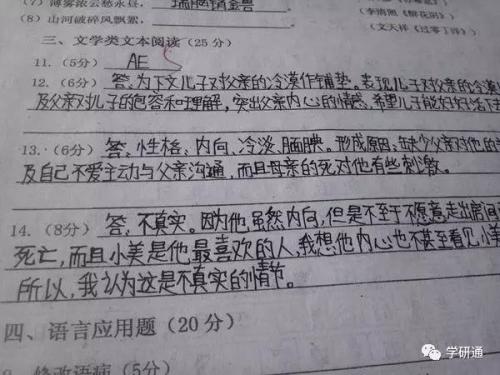 (7) 薄雾浓云愁永昼，瑞脑销金兽
(李清照《醉花阴》)
(8) 山河破碎风飘絮，
(文天祥《过零丁洋》)
三、文学类文本阅读(25分)
11. (5分) AE
12. (6分) 答、为下文儿子对父亲的冷漠作铺垫。表现儿子对父亲的冷淡
及父亲对儿子的包容和理解，突出父亲内心的情感、希望儿子能好好活下
13. (6分) 答、性格、内向、冷淡、腼腆。形成原因：缺少父亲对他的
及自己不爱主动与父亲沟通，而且母亲的死对他有些刺激。
14. (8分) 答，不真实。因为他虽然内向，但是不至于不愿意走出房间
死亡，而且小美是他最喜欢的人，我想他内心也不甚至看见小美
所以，我认为这是不真实的情节。
四、语言应用题(20分)
修改语病(5分)
学研通